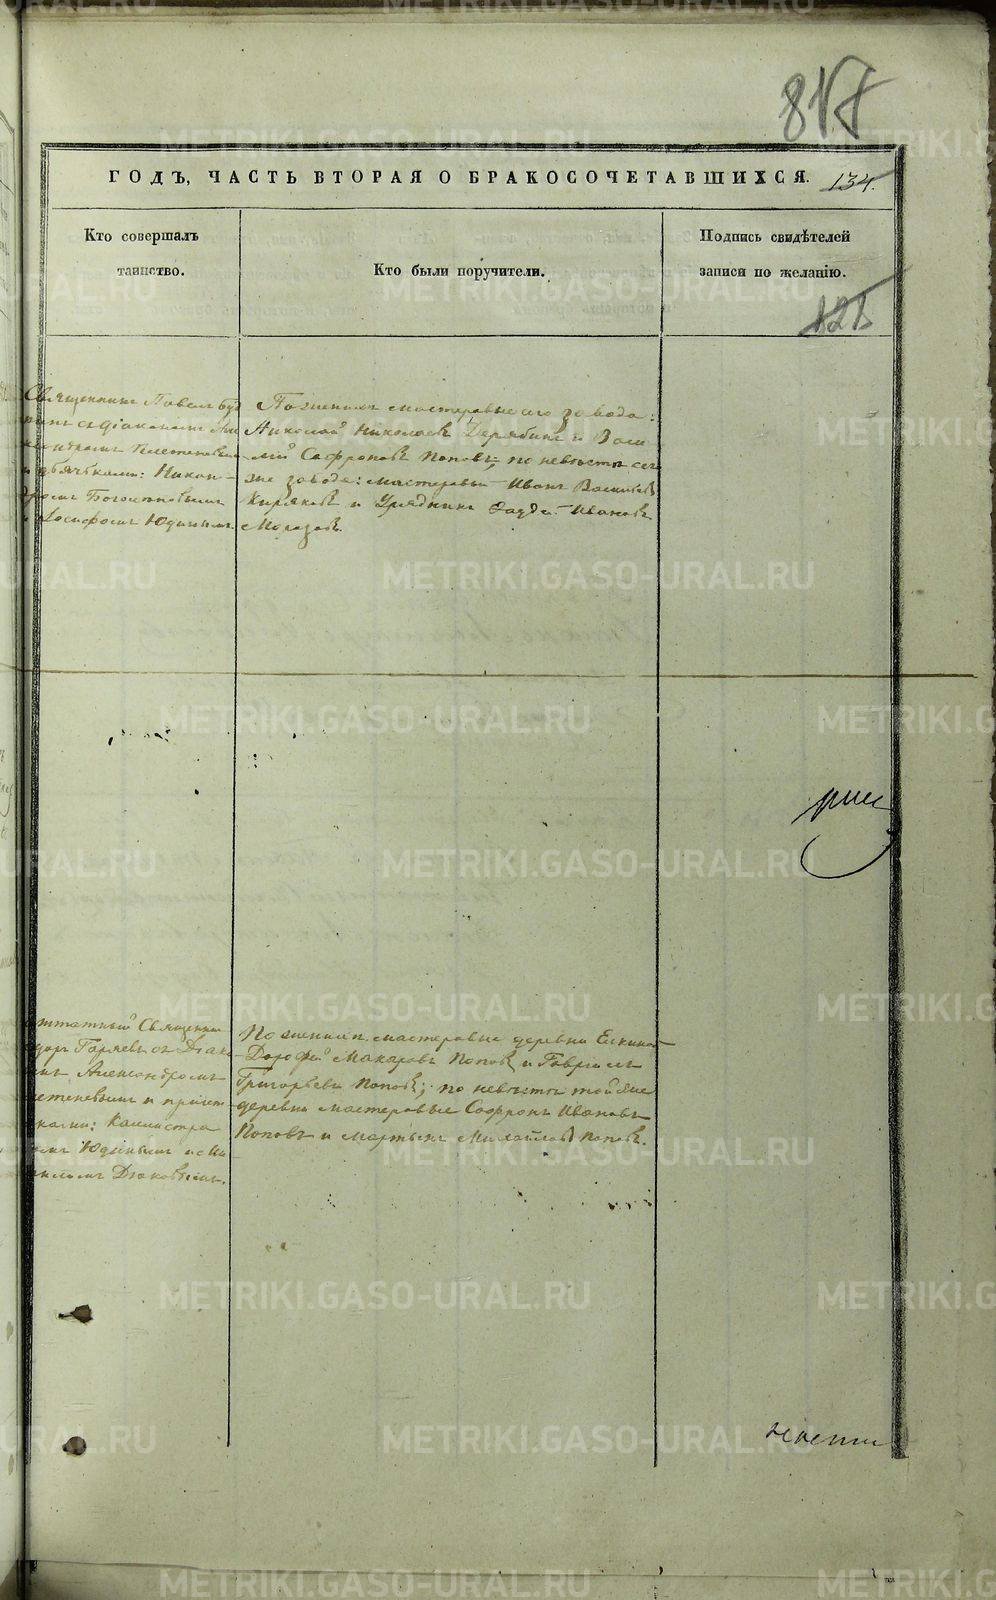 817
ГОДЪ, ЧАСТЬ ВТОРАЯ О БРАКОСОЧЕТАВШИХСЯ.
134.
Кто совершалъ
таинство.
Кто были поручители.
Подпись свидѣтелей
записи по желанію.
121
Священникъ Павелъ
съ діакономъ
Плетеневым
Никан-
дромъ Богословскимъ
Іосифомъ Юдинымъ
По женихѣ мастеровые сего завода:
Николай Николаевъ Дерябинъ и Васи
лій Сафроновъ Поповъ; по невѣстѣ сего
же завода: мастеровый Иванъ Васильевъ
Киряковъ и Урядникъ Фадѣй Ивановъ
Морозовъ.
штатный Священни
доръ Горяевъ съ Діако
мъ Александромъ
етеневымъ и причет
ками: Каллистра
омъ Юдинымъ и
Дьяковымъ.
По женихѣ мастеровые деревни
Дорофей Макаровъ Поповъ и Гавріилъ
Григорьевъ Поповъ; по невѣстѣ той же
деревни мастеровые Софронъ Ивановъ
Поповъ и Мартынъ Михайловъ Поповъ.
METRIKI.GASO-URAL.RU